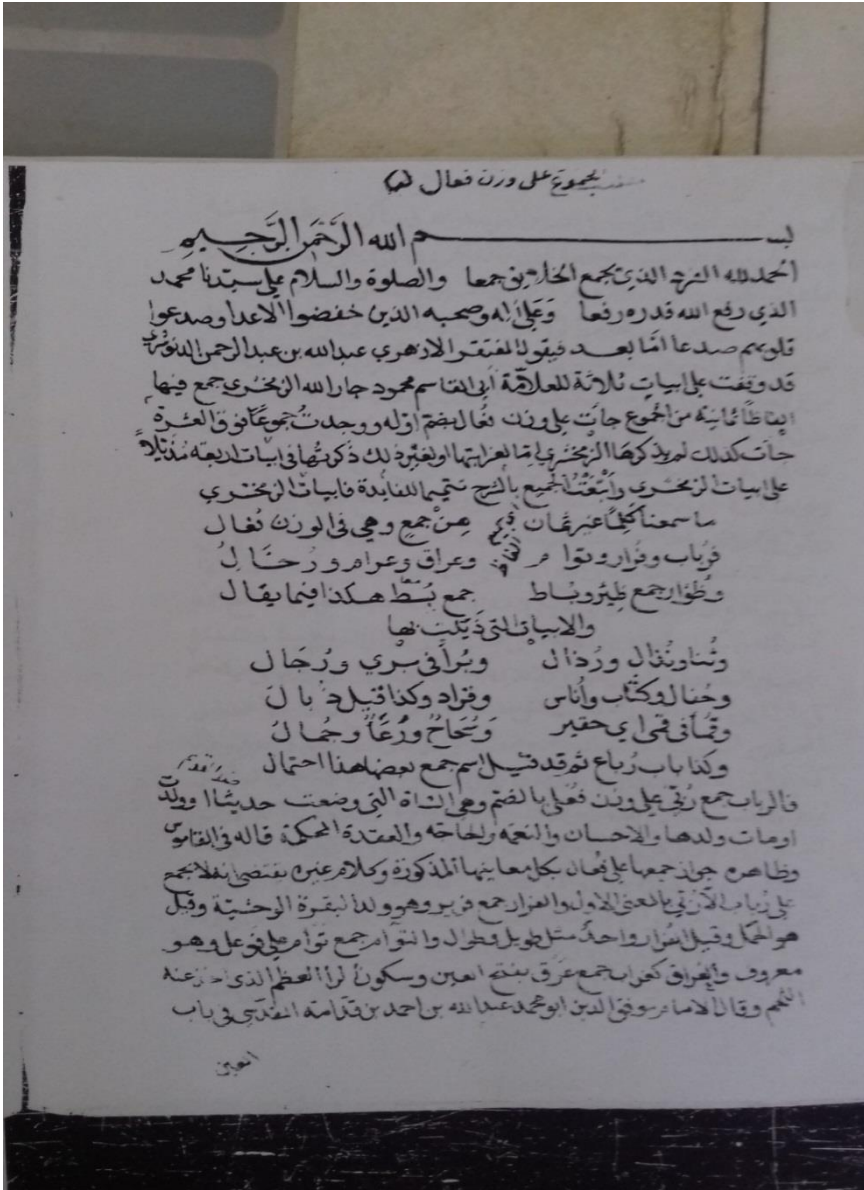 الجموع على وزن فعال
بسم الله الرحمن الرحيم
الحمد لله الفرد الذي يجمع الخلايق جمعا والصلوة والسلام على سيدنا محمد
الذي رفع الله قدره رفعا وعلى اله وصحبه الذين خفضوا الاعدا وصدعوا
قلوبهم صدعا امّا بعد فيقول المفتقر الازهري عبد الله بن عبد الرحمن الدنوشري
قد وقفت على ابيات ثلاثة للعلامة ابى القاسم محمود جار الله الزمخشري جمع فيها
الفاظا ثمانية من الجموع جات على وزن فعال بضم اوله ووجدت جموعًا فوق العشرة
جات كذلك لم يذكرها الزمخشري امّا لغرابتها او لغير ذلك ذكرتها في ابيات اربعة مذيلاً
على ابيات الزمخشري وأتبعتُ الجميع بالشرح تتميما للفايدة فابيات الزمخشري
ما سمعنا كلِمًا غير ثمان هن جمع وهي في الوزن فُعال
فرُباب وفُرار وتوا م وعراق وعرام ورُخال
وظُؤار جمع ظِئر وبُساط جمع بُسط هكذا فيما يقال
والابيات التي ذيلت بها
وثُنا ونُذال ورُذال وبُرأ في بري ورُجال
وجُفال وكُبّاب وأُناس وفراد وكذا قيل د بال
وقمأ في قمى اي حقير وسُحاحُ ورُعَاُ وجُمالُ
وكذا باب رُباع ثم قد قيل اسم جمع بعضها هذا احتمال
فالرباب جمع رُبّى على وزن فُعلى بالضم وهي الشاة التي وضعت حديثا او ولدت
او مات ولدها والاحسان والنعمة والحاجة والعقدة المحكمة قاله في القاموس
وظاهره جواز جمعها على فُعال بكل معانيها المذكورة وكلام غيره يقتضى انه لا يجمع
على رُباب الا رُبّى بالمعنى الاول والفرار جمع فرير وهو ولد البقرة الوحشية وقيل
هو الحمل وقيل الفرار واحد مثل طويل وطوال والتوام جمع توام على فوعل وهو
معروف والعُراق كغراب جمع عَرْق بفتح العين وسكون الرا العظم الذي اخذ عنه
اللحم وقال الامام موفق الدين ابو محمد عبد الله بن احمد بن قدامة المقدسي في باب
العين